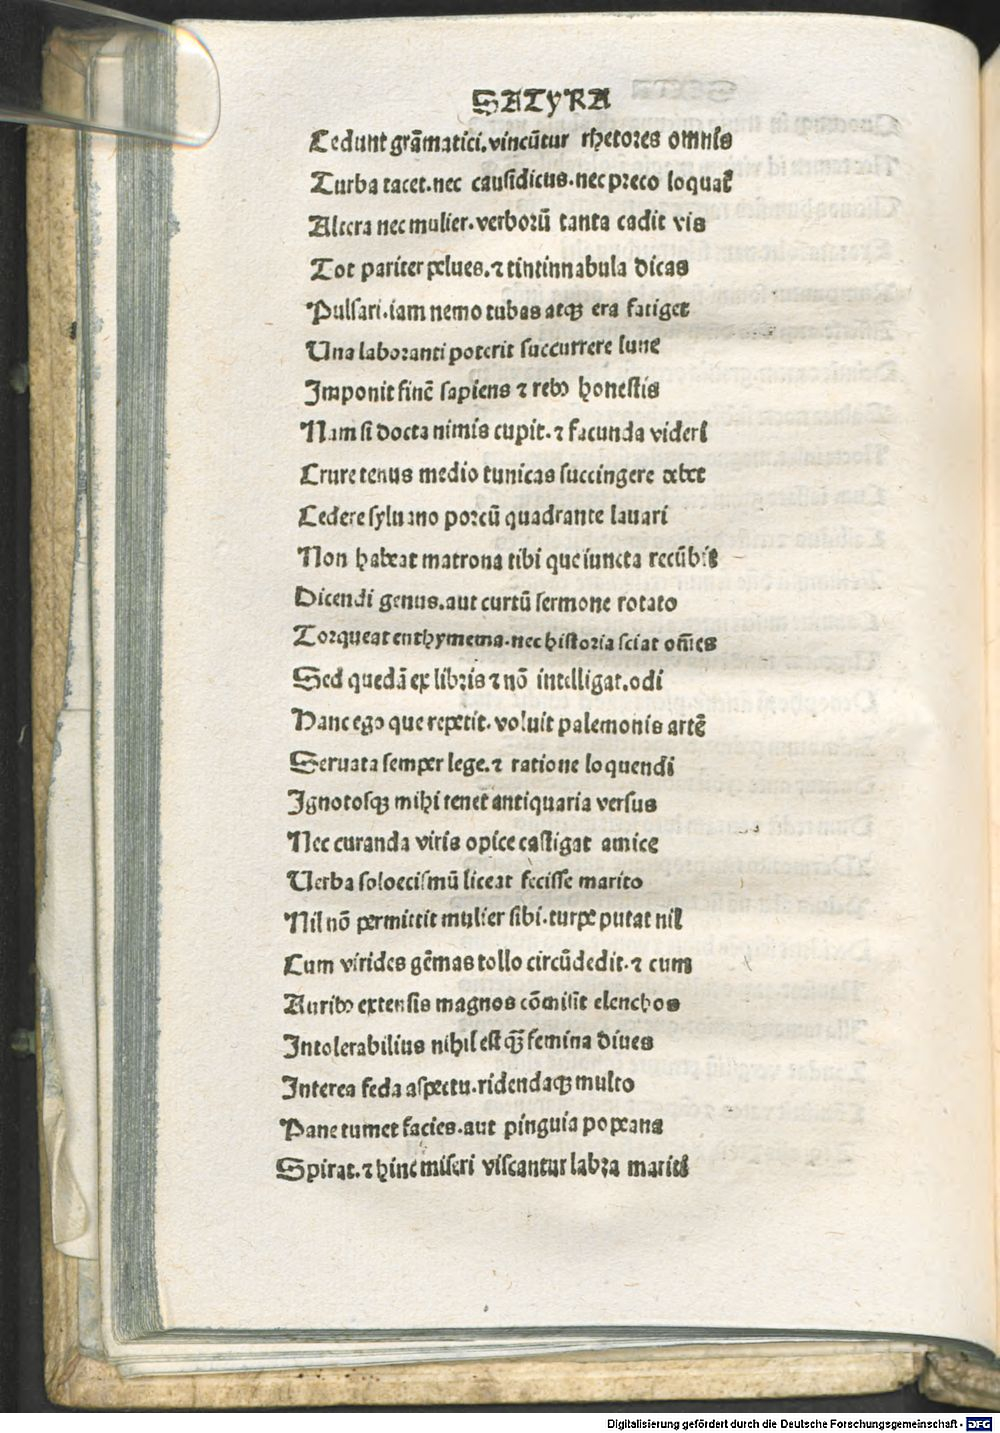 SATYRA
Cedunt grãmatici.vincũtur rhetores omnis
Turba tacet.nec causidicus.nec preco loquat᷑
Altera nec mulier.verborũ tanta cadit vis
Tot pariter pelues.⁊ tintinnabula dicas
Pulsari.iam nemo tubas atqꝫ era fatiget
Una laboranti poterit succurrere lune
Imponit finẽ sapiens ⁊ rebꝰ honestis
Nam si docta nimis cupit.⁊ facunda videri
Crure tenus medio tunicas succingere debet
Cedere syluano porcũ quadrante lauari
Non habeat matrona tibi que iuncta recũbit
Dicendi genus.aut curtũ sermone rotato
Torqueat enthymema.nec historia sciat om̃es
Sed quedã ex libris ⁊ nõ intelligat.odi
Hanc ego que repetit.voluit palemonis artẽ
Seruata semper lege.⁊ ratione loquendi
Ignotosqꝫ mihi tenet antiquaria versus
Nec curanda viris opice castigat amice
Verba soloecismũ liceat fecisse marito
Nil nõ permittit mulier sibi.turpe putat nil
Cum virides gẽmas collo circũdedit.⁊ cum
Auribꝰ extensis magnos cõmisit elenchos
Intolerabilius nihil est qꝫ̃ femina diues
Interea feda aspectu.ridendaqꝫ multo
Pane tumet facies.aut pinguia popeana
Spirat.⁊ hinc miseri viscantur labra mariti
Digitalisierung gefördert durch die Deutsche Forschungsgemeinschaft - DFG